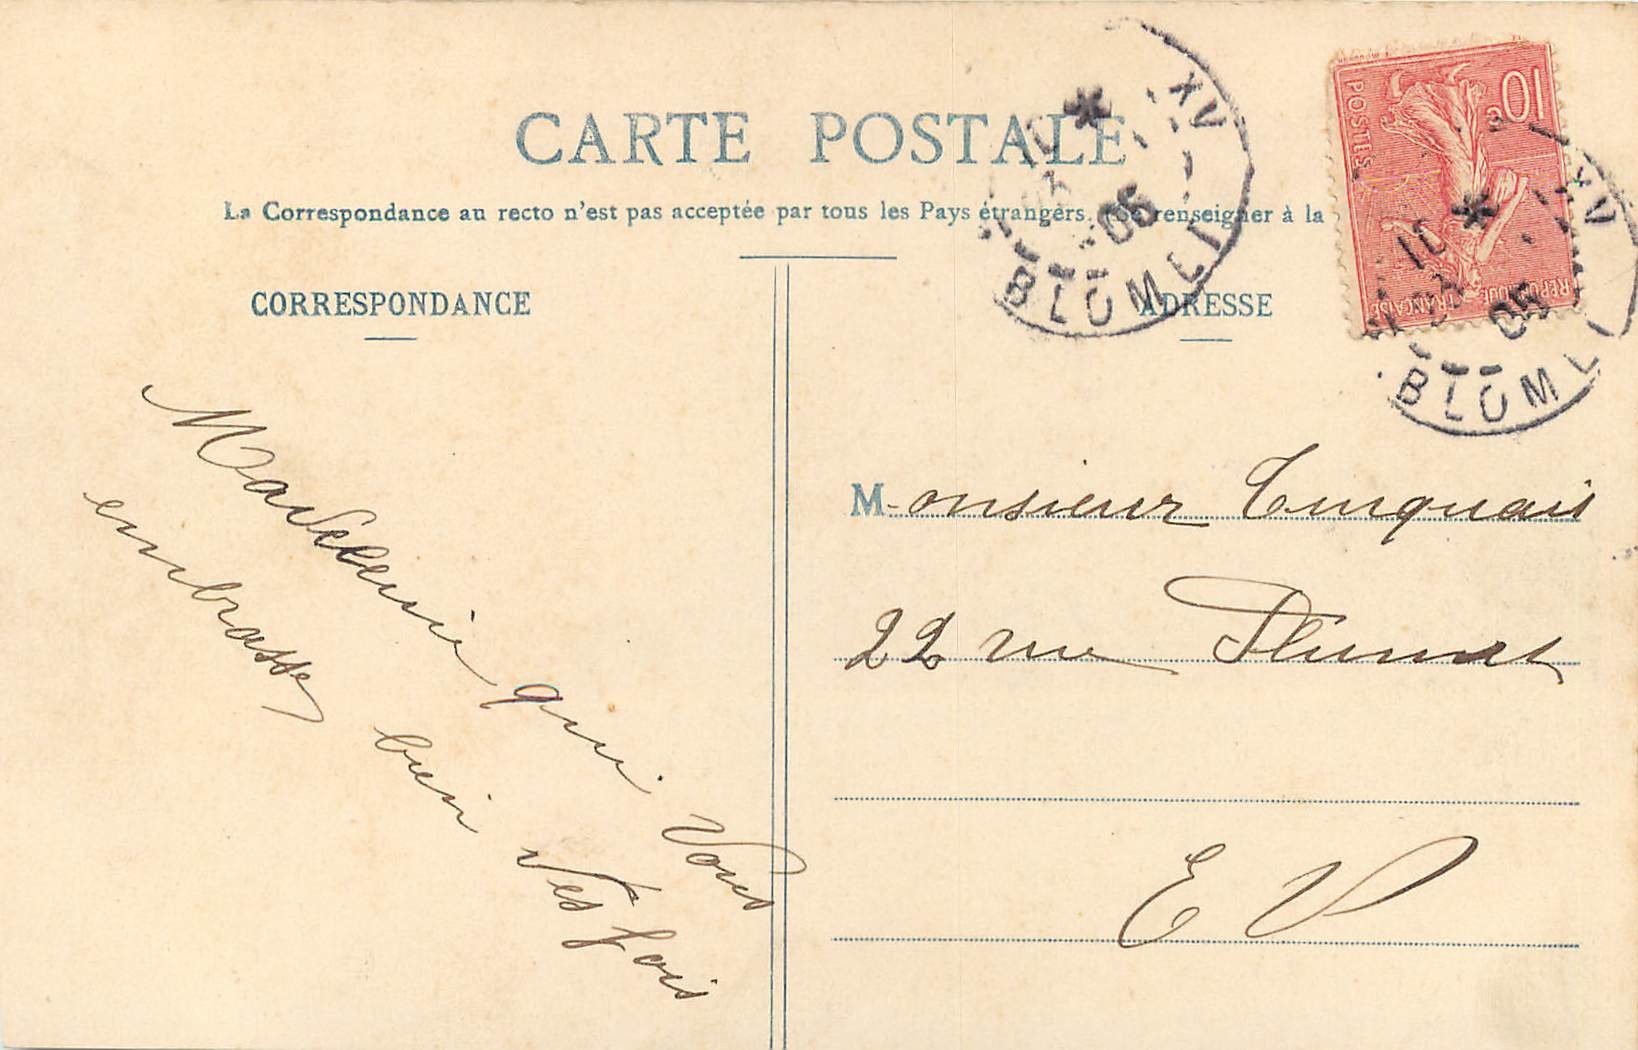 CARTE POSTALE
La Correspondance au recto n'est pas acceptée par tous les Pays étrangers. (Se renseigner à la
CORRESPONDANCE
ADRESSE
Madeleine qui vous
embrasse bien des fois
Monsieur Turquais
22 rue Plumet
E V
XV
10
05
BLOME
10c
POSTES
REPUBLIQUE FRANÇAISE
XV
10
05
BLOM